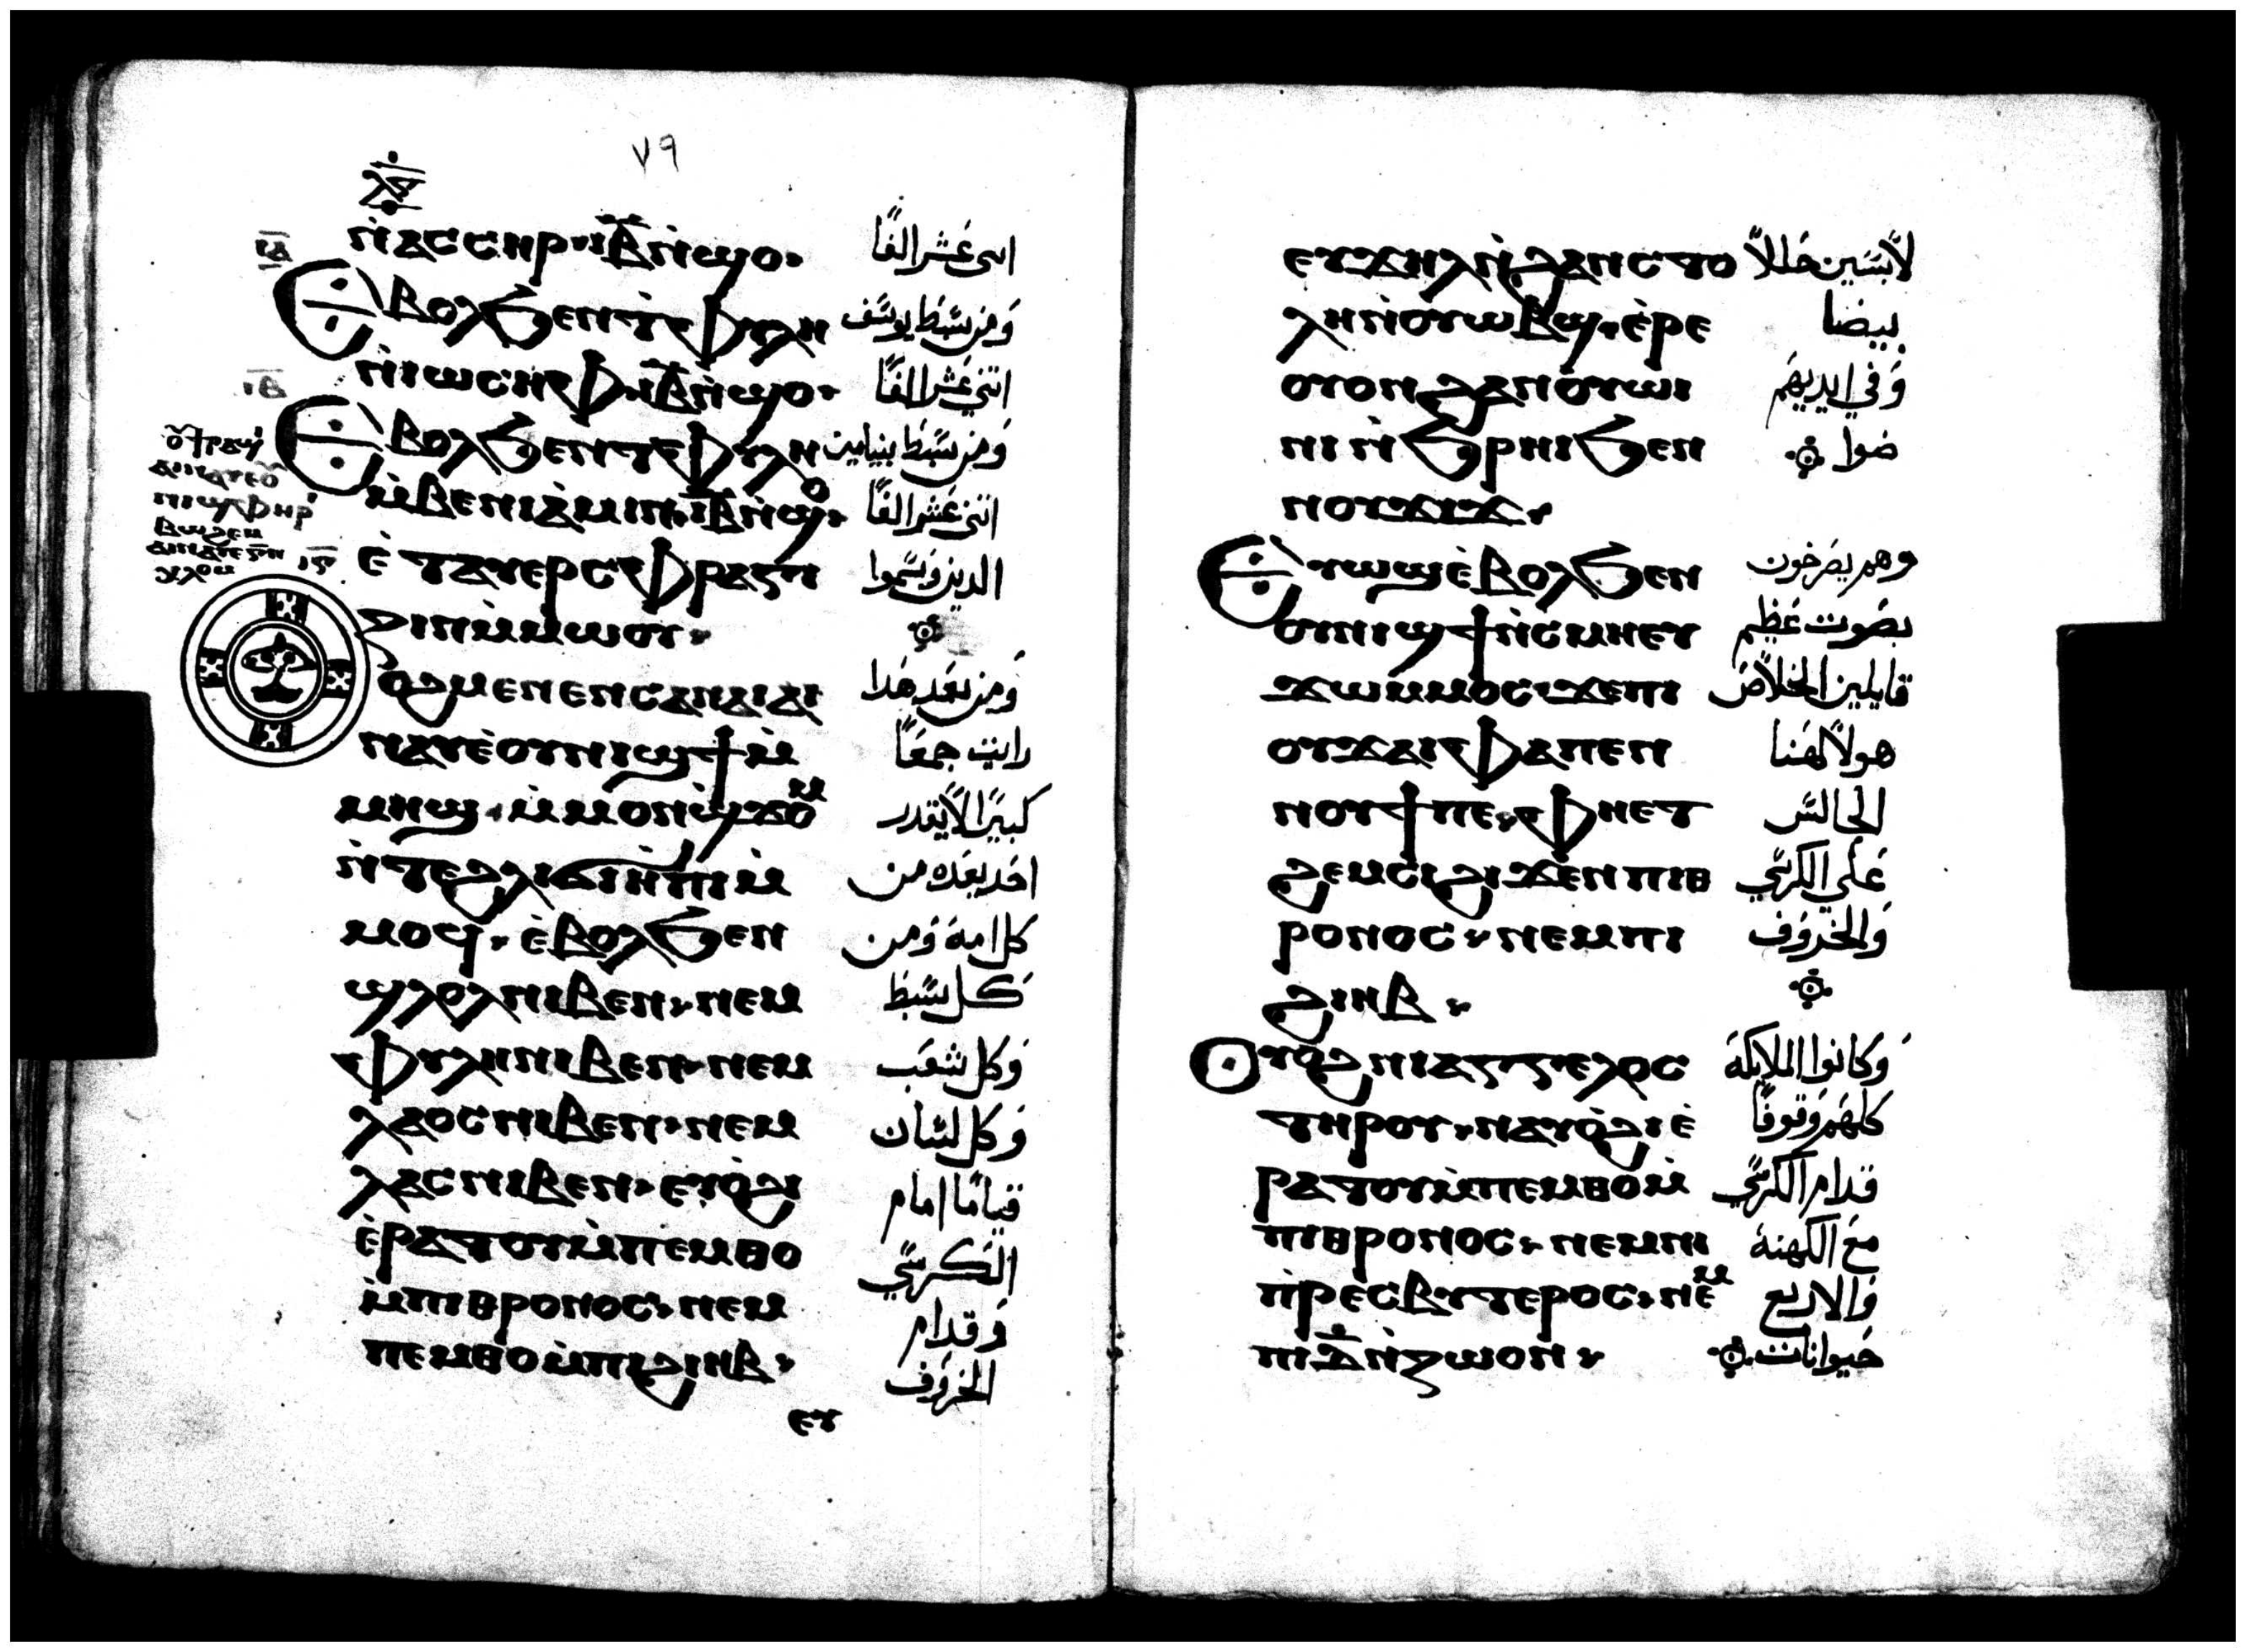 ٧٩
ⲛ̀ⲁⲥⲥⲏⲣ ⲓ̅ⲃ̅ ⲛ̀ϣⲟ
اتنى عَشر الفًا
ⲓ̅ⲁ̅
Ⲉⲃⲟⲗϧⲉⲛⲧ̀ⲉⲫⲩⲗⲏ
وَمن سَبَط يوسَف
ⲛ̀ⲓⲱⲥⲏⲫ ⲓ̅ⲃ̅ ⲛ̀ϣⲟ
اتني عَشر الفًا
ⲓ̅ⲃ̅
Ⲉⲃⲟⲗϧⲉⲛⲧⲉⲫⲩⲗⲏ
وَمن سَبَط بنيامين
ⲙ̀ⲃⲉⲛⲓⲁ̀ⲙⲓⲛ ⲓ̅ⲃ̅ ⲛ̀ϣⲟ
اتني عَشر الفًا
ⲉ̀ⲧⲁⲩⲉⲣⲥⲫⲣⲁⲅⲓ
الدين وَسَموا
ⲍⲓⲛⲙ̀ⲙⲱⲟⲩ
ⲟϩⲙⲉⲛⲉⲛⲥⲁⲛⲁⲓⲁⲓ
وَمن بَعَد هَدا
ⲛⲁⲩⲉ̀ⲟⲩⲛⲓϣϯⲙ̀
رايت جمعًا
ⲙⲏϣ ⲙ̀ⲙⲟⲛϣ̀ϫⲟⲙ
كبيرًا لاَيقدر
ⲛ̀ⲧⲉϩⲗⲓϭⲓⲏ̀ⲡⲓⲙ̀
احَد يعَده من
ⲙⲟϥ ⲉ̀ⲃⲟⲗϧⲉⲛ
كل امة وَمن
ϣⲗⲟⲗⲛⲓⲃⲉⲛ ⲛⲉⲙ
كل سَبَط
ⲫⲩⲗⲏⲛⲓⲃⲉⲛ ⲛⲉⲙ
وَكل شعَب
ⲗⲁⲟⲥⲛⲓⲃⲉⲛ ⲛⲉⲙ
وَكل لسَان
ⲗⲁⲥⲛⲓⲃⲉⲛ ⲉⲩⲟ̀ϩⲓ
قيامًا امام
ⲉ̀ⲣⲁⲧⲟⲩⲙ̀ⲡⲉⲙⲑⲟ
الكرسَي
ⲙ̀ⲡⲓⲑⲣⲟⲛⲟⲥ ⲛⲉⲙ
وَقدام
ⲡⲉⲙⲑⲟⲙ̀ⲡⲓϩⲓⲏⲃ
الخروَف
ⲉⲩ
ⲉⲩϫⲏⲗⲛ̀ϩⲁⲛⲥⲧⲟ
لاَبسَين حَللاً
ⲗⲏⲛ̀ⲟⲩⲱⲃϣ ⲉ̀ⲣⲉ
بيضا
ⲟⲩⲟⲛϩⲁⲛⲟ̀ⲩⲱⲓ
وَفي ايديهَم
ⲛⲓⲛ̀ϧⲣⲏⲓϧⲉⲛ
ضوا
ⲛⲟⲩϫⲓϫ
Ⲉⲩⲱϣⲉ̀ⲃⲟⲗϧⲉⲛ
وهم يصَرخون
ⲟⲩⲛⲓϣϯⲛ̀ⲥⲙⲏⲉⲩ
بصَوت عَظيم
ϫⲱⲙ̀ⲙⲟⲥ ϫⲉⲡⲓ
قايلين الخلاَص
ⲟⲩϫⲁⲓⲫⲁⲡⲉⲛ
هولاَلهَنا
ⲛⲟⲩϯⲡⲉ ⲫⲏⲉⲧ
الجالسَ
ϩⲉⲙⲥⲓϩⲓϫⲉⲛⲡⲓⲑ
عَلي الكرسَي
ⲣⲟⲛⲟⲥ ⲛⲉⲙⲡⲓ
وَالخروَف
ϩⲓⲏⲃ
Ⲟⲩⲟϩⲛⲓⲁⲅⲅⲉⲗⲟⲥ
وَكانوا الملايكة
ⲧⲏⲣⲟⲩ ⲛⲁⲩⲟ̀ϩⲓⲉ̀
كلهَم وَقوفًا
ⲣⲁⲧⲟⲩⲙ̀ⲡⲉⲙⲑⲟⲙ̀
قدام الكرسَي
ⲡⲓⲑⲣⲟⲛⲟⲥ ⲛⲉⲙⲛⲓ
مَع الكهنة
ⲡ̀ⲣⲉⲥⲃⲩⲧⲉⲣⲟⲥ ⲛⲉⲙ
وَالاربع
ⲡⲓⲇ̅ⲛ̀ⲍⲱⲟⲛ
حَيوانات